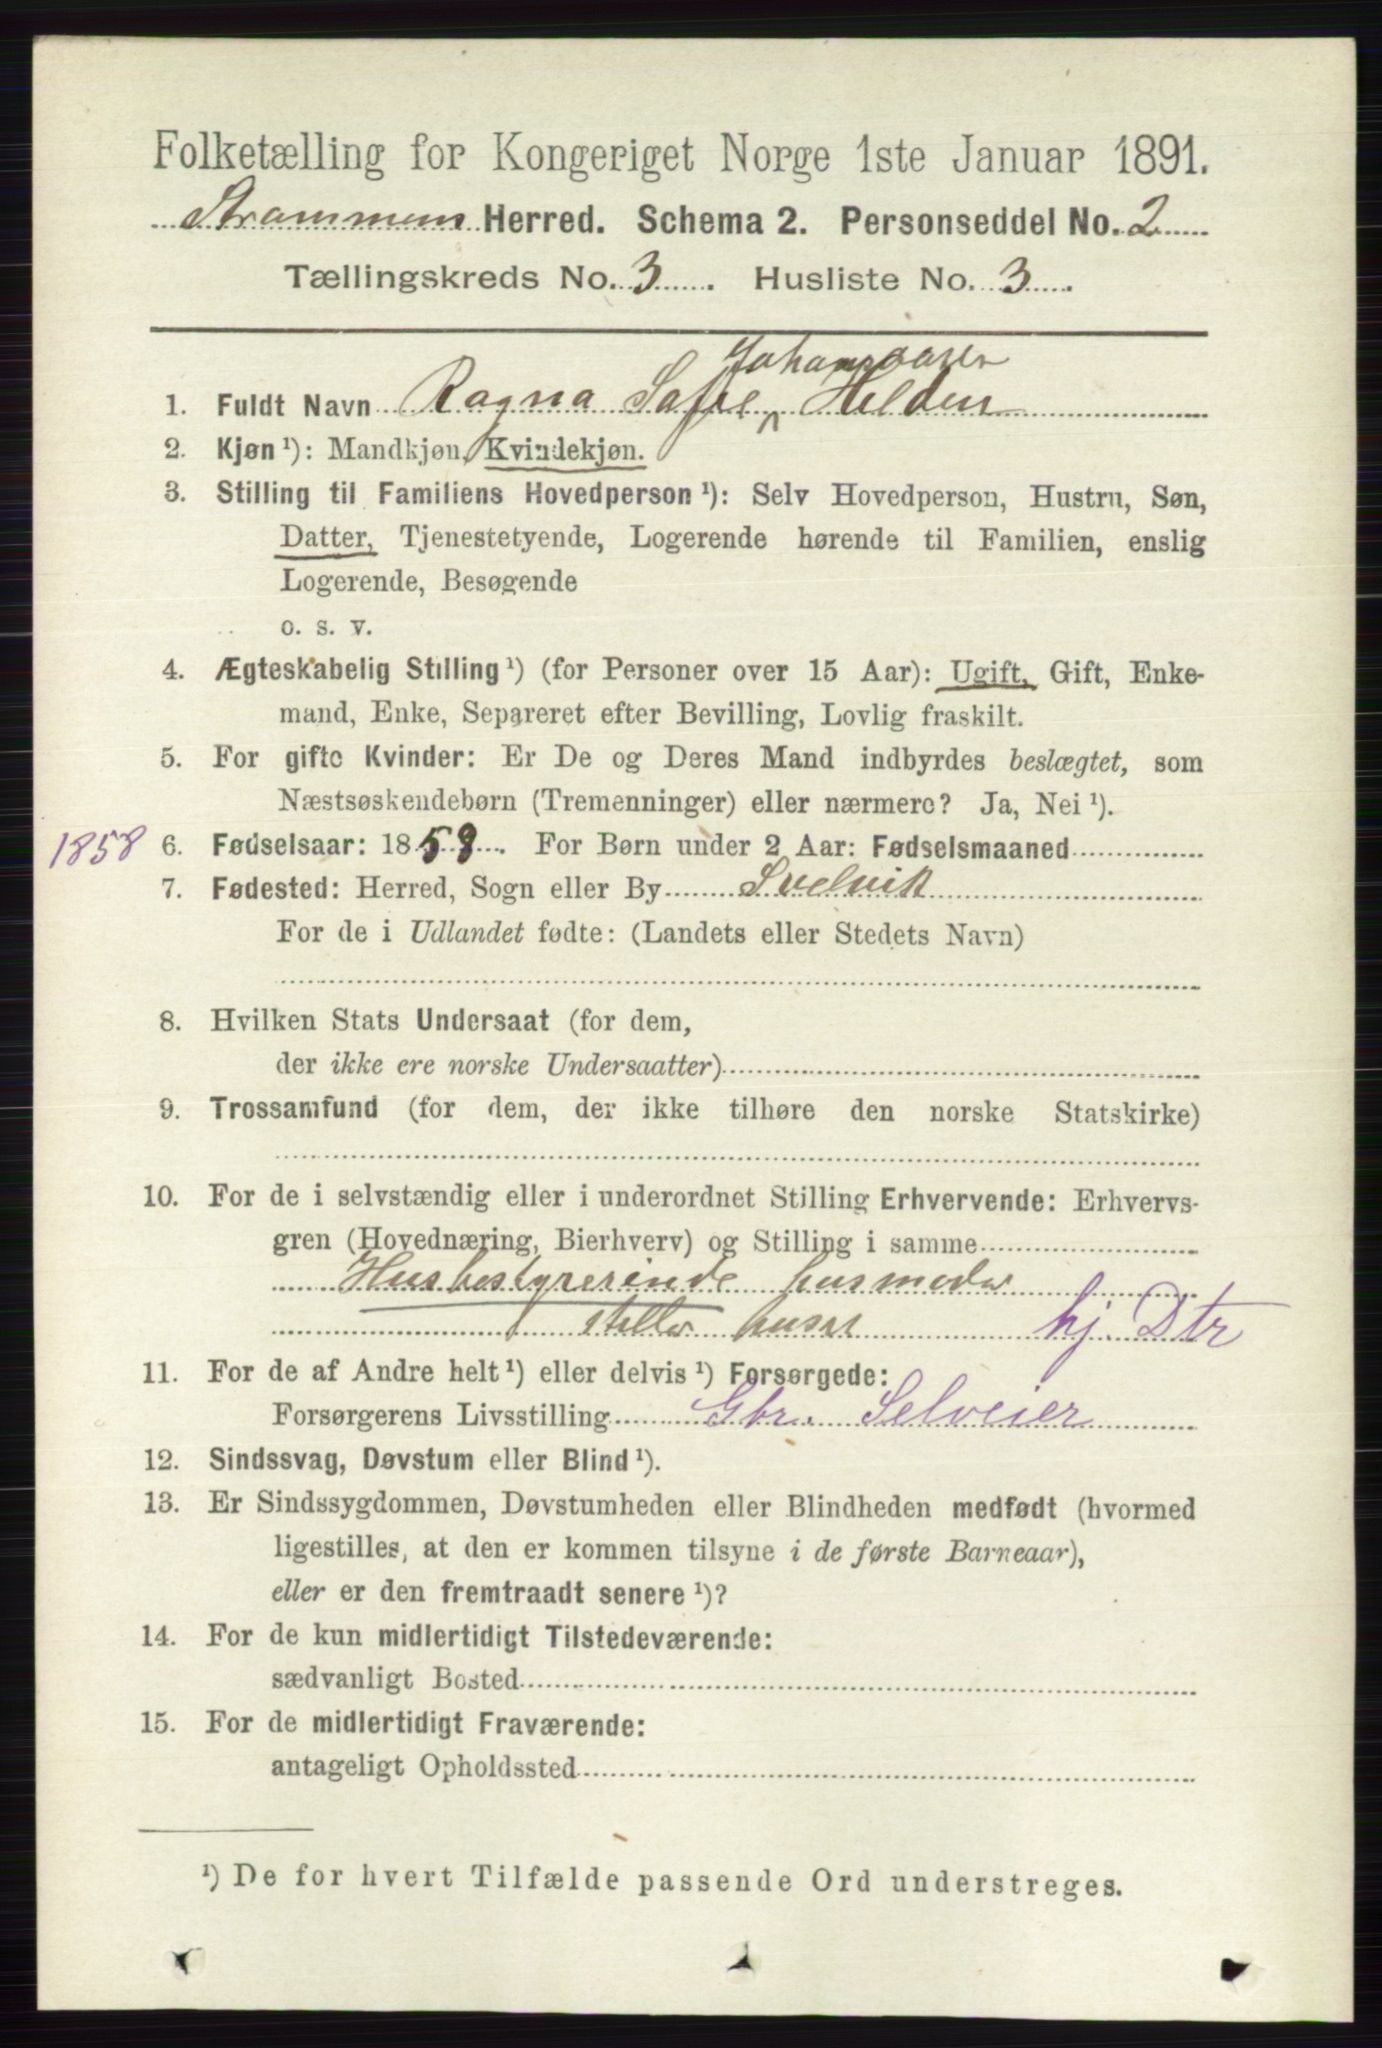 Folketælling for Kongeriget Norge 1ste Januar 1891.
Strømmens Herred. Schema 2. Personseddel No. 2
Tællingskreds No. 3. Husliste No. 3.
1. Fuldt Navn Ragna Sofie Johannesen Helden
2. Kjøn ¹): Mandkjøn, Kvindekjøn.
3. Stilling til Familiens Hovedperson ¹): Selv Hovedperson, Hustru, Søn,
Datter, Tjenestetyende, Logerende hørende til Familien, enslig
Logerende, Besøgende
o. s. v.
4. Ægteskabelig Stilling ¹) (for Personer over 15 Aar): Ugift, Gift, Enke-
mand, Enke, Separeret efter Bevilling, Lovlig fraskilt.
5. For gifte Kvinder: Er De og Deres Mand indbyrdes beslægtet, som
Næstsøskendebørn (Tremenninger) eller nærmere? Ja, Nei ¹).
1858 6. Fødselsaar: 1858. For Børn under 2 Aar: Fødselsmaaned
7. Fødested: Herred, Sogn eller By Svelvik
For de i Udlandet fødte: (Landets eller Stedets Navn)
8. Hvilken Stats Undersaat (for dem,
der ikke ere norske Undersaatter)
9. Trossamfund (for dem, der ikke tilhøre den norske Statskirke)
10. For de i selvstændig eller i underordnet Stilling Erhvervende: Erhvervs-
gren (Hovednæring, Bierhverv) og Stilling i samme
Husbestyrerinde husmoder
steller huset hj. Dtr
11. For de af Andre helt ¹) eller delvis ¹) Forsørgede:
Forsørgerens Livsstilling Gbr. Selveier
12. Sindssvag, Døvstum eller Blind ¹).
13. Er Sindssygdommen, Døvstumheden eller Blindheden medfødt (hvormed
ligestilles, at den er kommen tilsyne i de første Barneaar),
eller er den fremtraadt senere ¹)?
14. For de kun midlertidigt Tilstedeværende:
sædvanligt Bosted
15. For de midlertidigt Fraværende:
antageligt Opholdssted
¹) De for hvert Tilfælde passende Ord understreges.